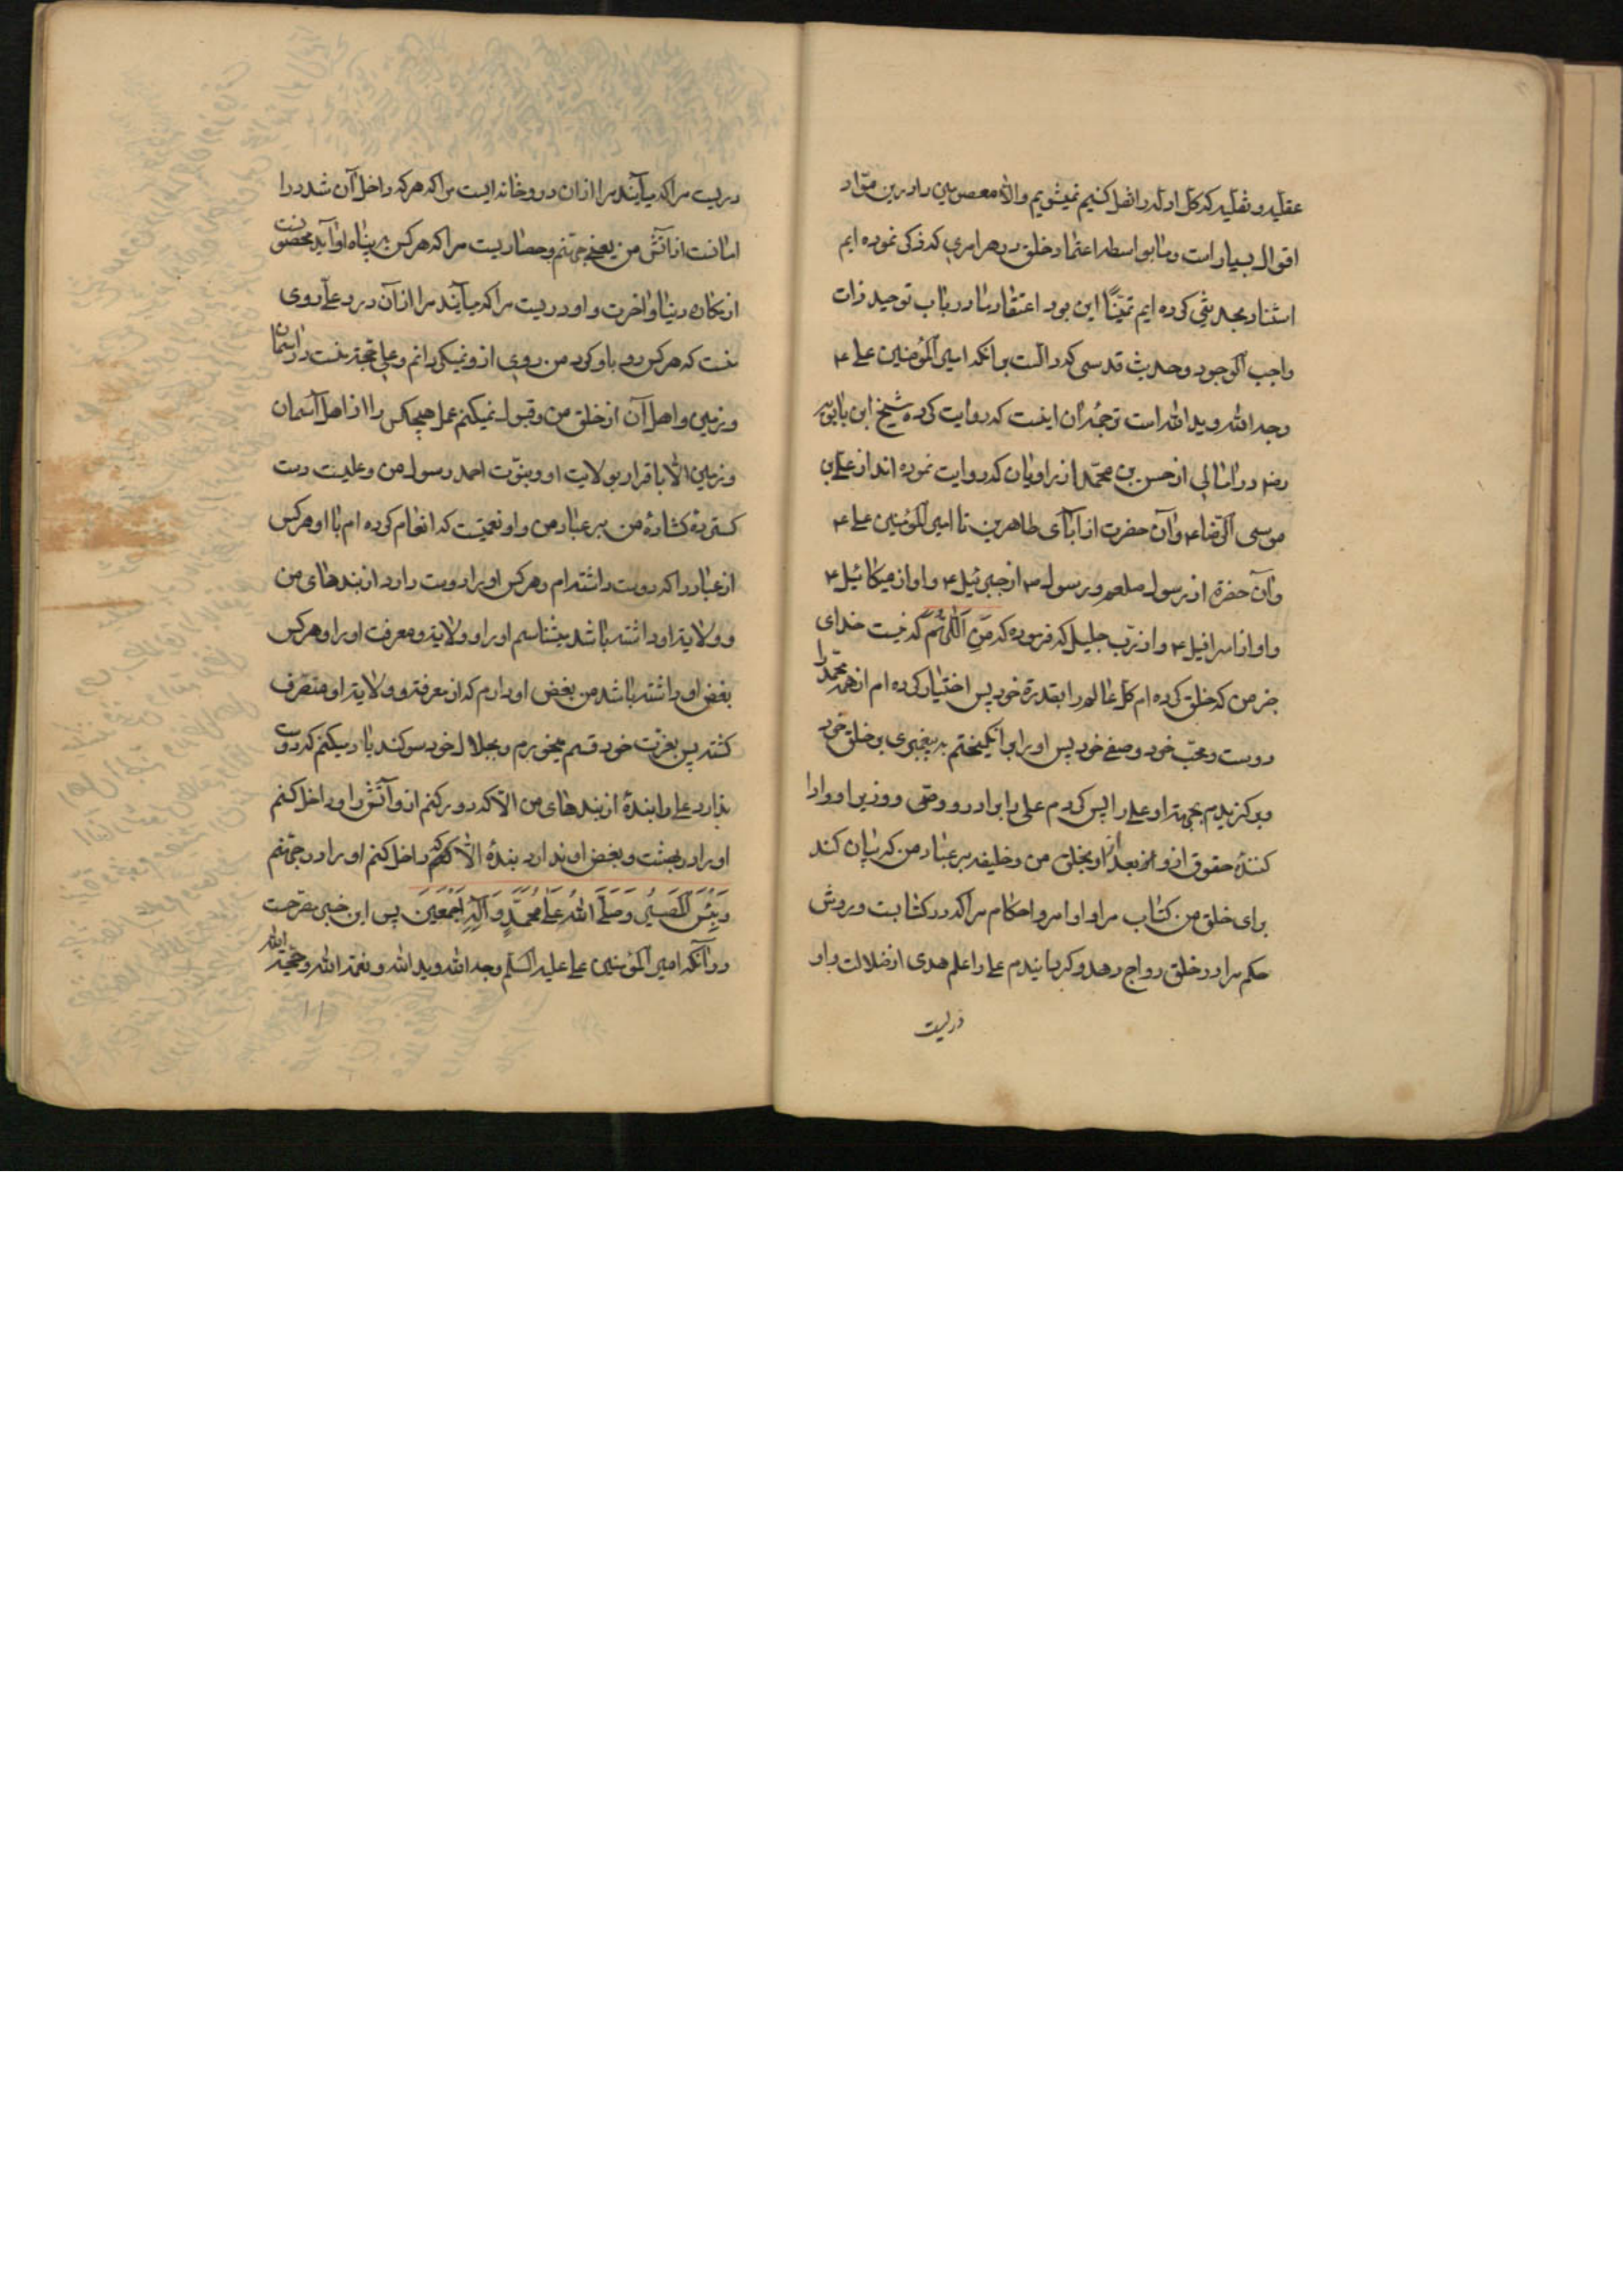 عقلیه و نقلیه که کل اوله را نقل کنیم نمیشویم و الا معصومین را درین مواد
اقوال بسیار است و ما بواسطه اعتماد خلق در هر امری که ذکر نموده ایم
استناد بحدیثی کرده ایم تمیناً این بود اعتقاد ما در باب توحید ذات
واجب الوجود و حدیث قدسی که دالست بر آنکه امیر المؤمنین علی ۴
وجه الله و ید الله است ترجمه آن اینست که روایت کرده شیخ ابن بابویه
رضه در امالی از حسن بن محمد از راویان که روایت نموده اند از علی بن
موسی الرضا ۴ و آن حضرت از آبای طاهرین تا امیر المؤمنین علی ۴
و آن حضرة از رسول صلعم و رسول ص از جبرئیل ۴ و او از میکائیل ۴
و او از اسرافیل ۴ و از رب جلیل که فرموده که من که نیست خدای
جز من که خلق کرده ام کل عالم را بقدرة خود پس اختیار کرده ام از همه محمد را
دوست و محب خود و صفی خود پس او را برانگیختم به پیغمبری بر خلق خود
و برگزیدم بجهة او علی را پس کردم علی را برادر و وصی و وزیر او و ادا
کنندهٔ حقوق از و بعد از او بخلق من و خلیفه بر عباد من که بیان کند
برای خلق من کتاب مرا و اوامر و احکام مرا که در کتابت و بروش
حکم مرا در خلق رواج دهد و گردانیدم علی را علم هدی از ضلالت و او
دریست
دریست مرا که میآیند مرا از آن در و خانه ایست مرا که هر که داخل آن شد در آ
امانست از آتش من یعنی جهنم و حصاریست مرا که هر کس به پناه او آید محصونست
از مکاره دنیا و آخرت و او دریست مرا که میآیند مرا از آن در و علی روی
منست که هر کس رو باو کرد من روی ازو نمیگردانم و علی حجة منست در آسمان
و زمین و اهل آن از خلق من و قبول نمیکنم عمل هیچکس را از اهل آسمان
و زمین الا باقرار بولایت او و بنوت احمد رسول من و علیست دست
کسترده کشادهٔ من بر عباد من و او نعمتیست که انعام کرده ام با او هر کس
از عباد را که دوست داشته ام و هر کس او را دوست دارد از بندهای من
و ولایة او داشته باشد بشناسم او را و ولایة و معرفت او را و هر کس
بغض او داشته باشد من بغض او دارم که از معرفة و ولایة او منصرف
کشته پس بعزت خود قسم میخورم و بجلال خود سوکند یاد میکنم که دوست
ندارد علی را بندهٔ از بندهای من الا که دور کنم ازو آتش را و داخل کنم
او را در بهشت و بغض او ندارد بندهٔ الا که داخل کنم او را در جهنم
وَ بِئْسَ المَصِیر وَ صَلَّی اللهُ عَلی مُحَمَّدٍ وَ آلِهِ اَجْمَعِینَ پس این خبر مصرحست
در آنکه امیر المؤمنین علی علیه السلم وجه الله و ید الله و نعمة الله و حجة الله